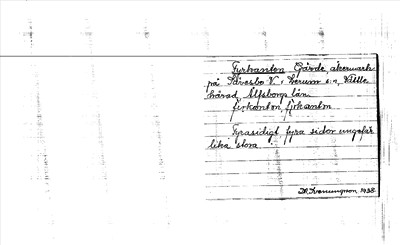 Fyrkanten Gärde, åkermark
på Såvesbo V. i Herum s:n, Vättle
härad, Älfsborgs län.
fyrkanten, fyrkantn
Fyrasidigt fyra sidor ungefär
lika stora
1938